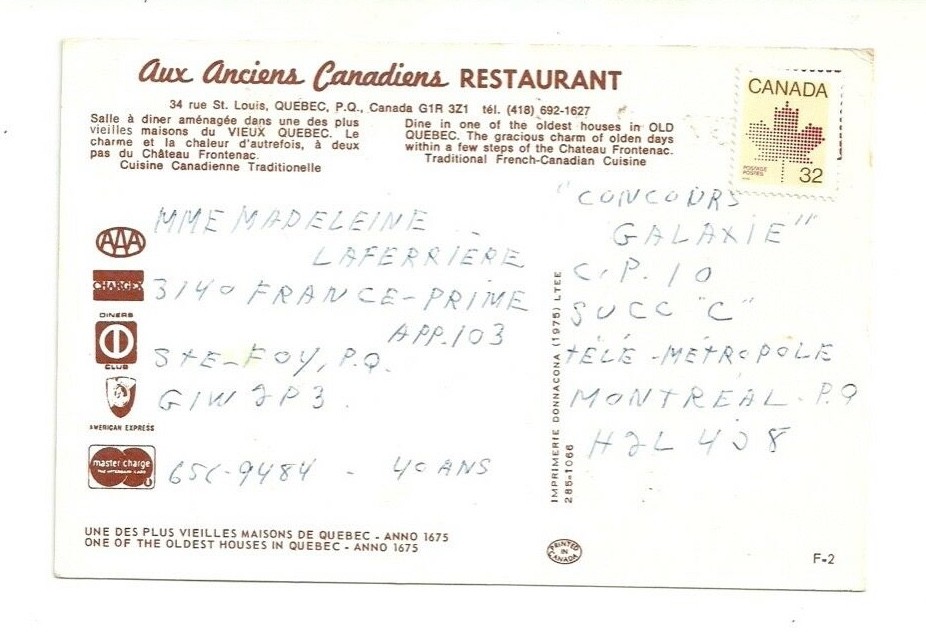 Aux Anciens Canadiens RESTAURANT
34 rue St. Louis, QUEBEC, P.Q., Canada G1R 3Z1 tél. (418) 692-1627
Salle à diner aménagée dans une des plus
vieilles maisons du VIEUX QUEBEC. Le
charme et la chaleur d'autrefois, à deux
pas du Château Frontenac.
Cuisine Canadienne Traditionelle
Dine in one of the oldest houses in OLD
QUEBEC. The gracious charm of olden days
within a few steps of the Chateau Frontenac.
Traditional French-Canadian Cuisine
CANADA
POSTAGE
POSTES
32
MME MADELEINE
LAFERRIERE
3140 FRANCE-PRIME
APP.103
STE-FOY, P.Q.
G1W 2P3.
656-9484 - 40 ANS
AAA
CHARGEX
DINERS
CLUB
AMERICAN EXPRESS
master charge
THE INTERBANK CARD
"CONCOURS
GALAXIE"
C.P. 10
SUCC "C"
TÉLÉ-MÉTROPOLE
MONTREAL. P.Q
H2L 4J8
IMPRIMERIE DONNACONA (1975) LTEE
285-1066
UNE DES PLUS VIEILLES MAISONS DE QUEBEC - ANNO 1675
ONE OF THE OLDEST HOUSES IN QUEBEC - ANNO 1675
PRINTED
IN
CANADA
F-2